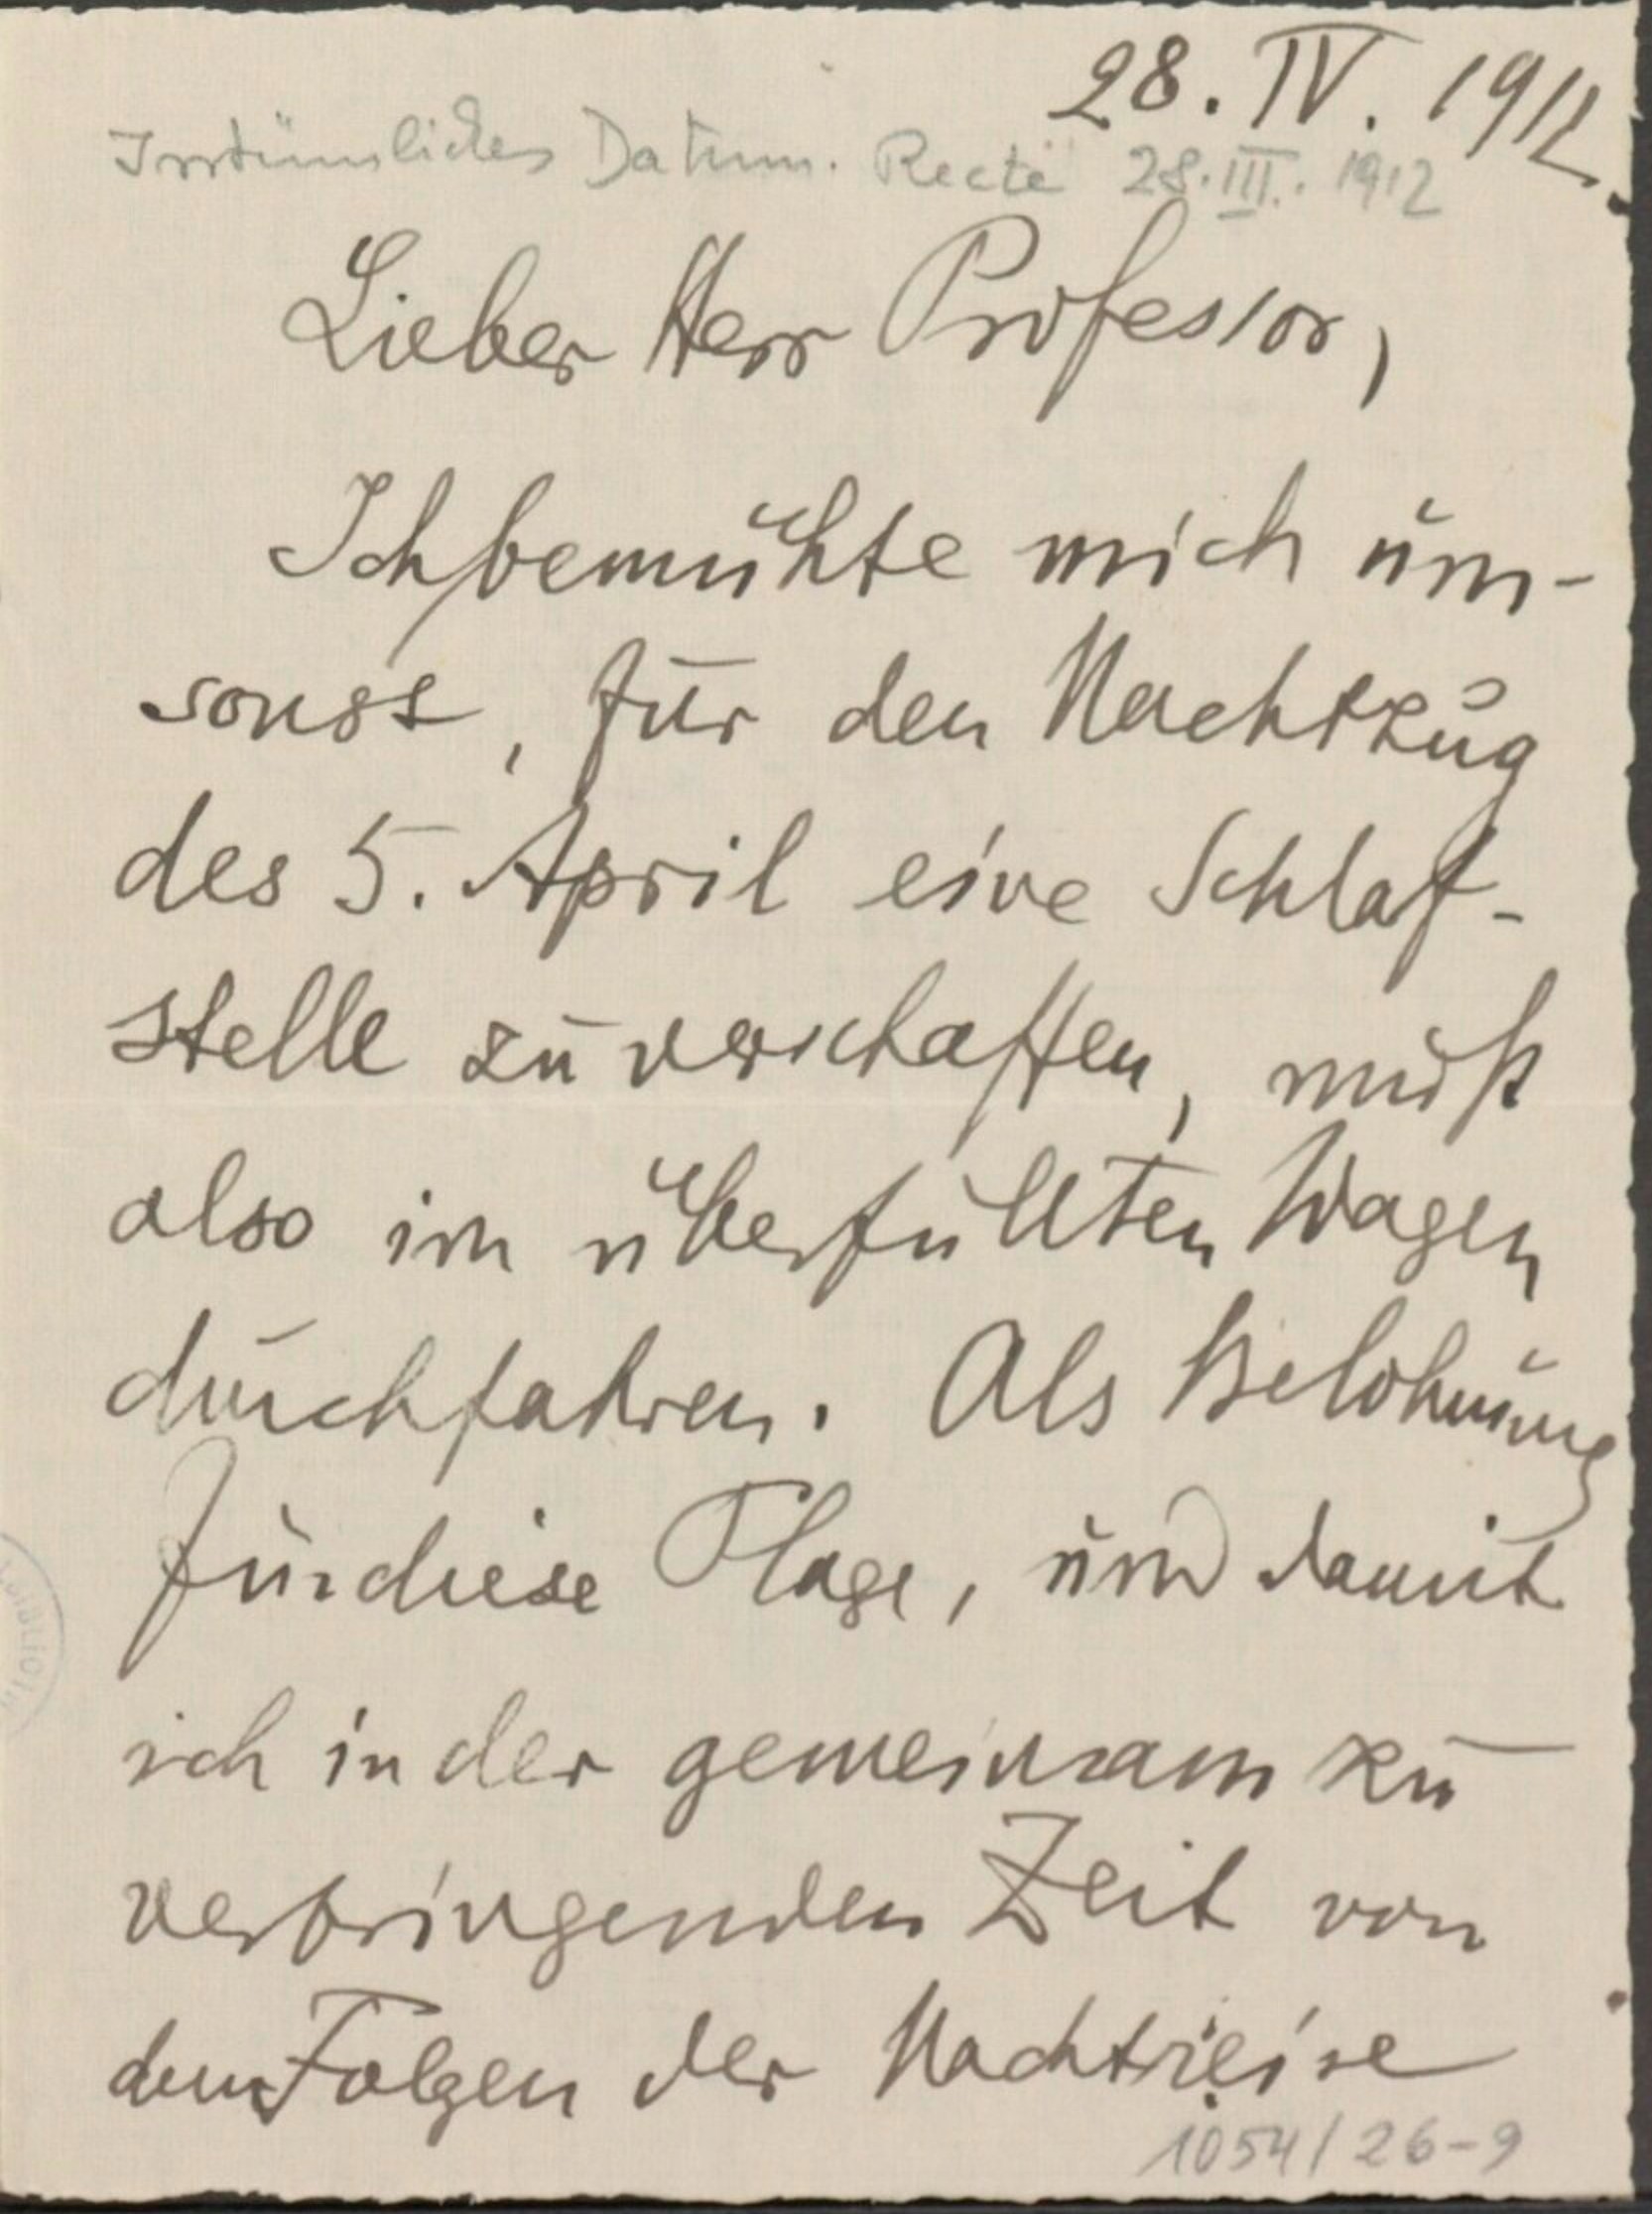 28. IV. 1912.
Irrtümliches Datum. Recte 28. III. 1912
Lieber Herr Professor,
Ich bemühte mich um-
sonst, für den Nachtzug
des 5. April eine Schlaf-
stelle zu verschaffen, muß
also im überfüllten Wagen
durchfahren. Als Belohnung
für diese Plage, und damit
ich in der gemeinsam zu
verbringenden Zeit von
den Folgen der Nachtreise
1054/26-9